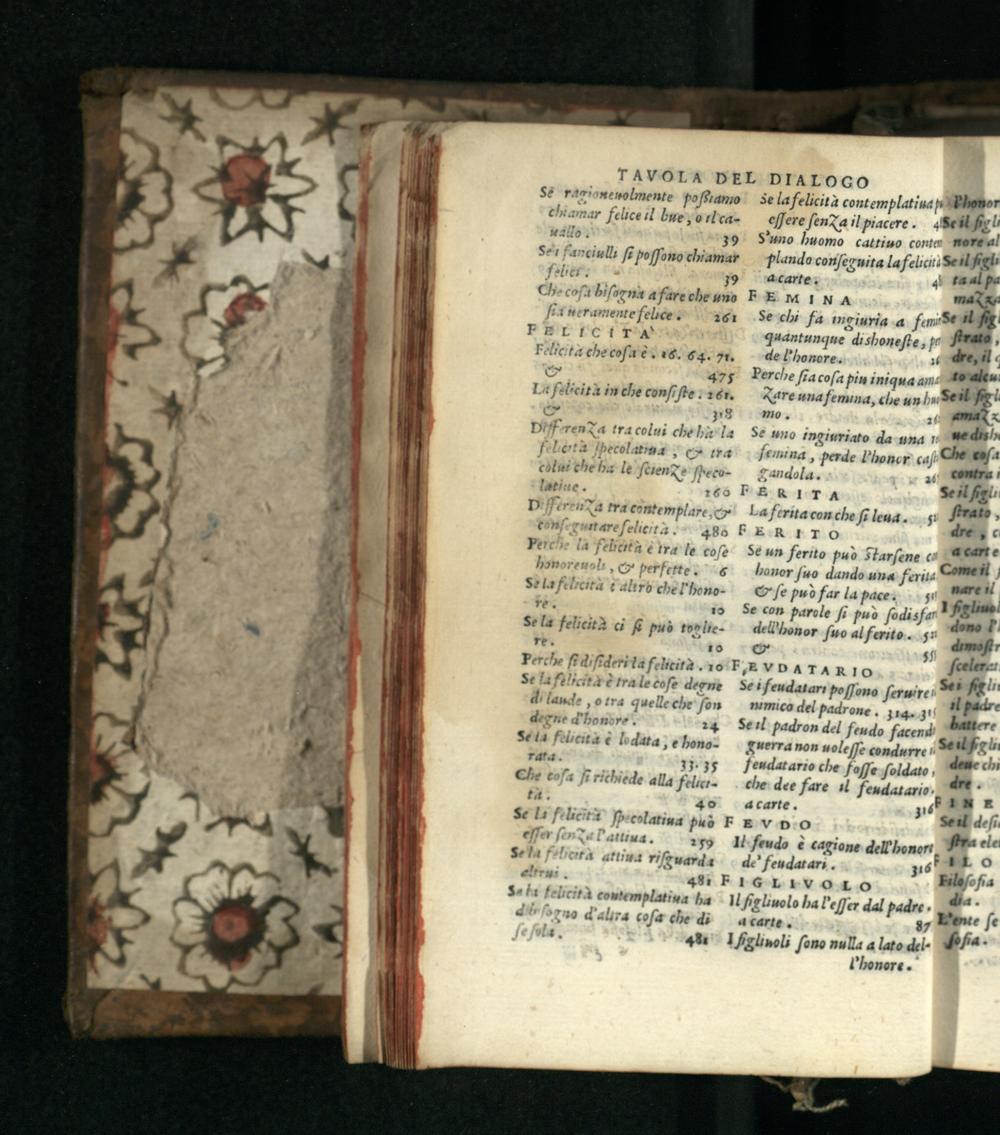 TAVOLA DEL DIALOGO
Se ragioneuolmente possiamo
chiamar felice il bue, o il ca-
uallo. 39
Se i fanciulli si possono chiamar
felici. 39
Che cosa bisogna a fare che uno
sia ueramente felice. 261
FELICITA`
Felicità che cosa è. 16. 64. 71.
& 475
La felicità in che consiste. 261.
& 318
Differenza tra colui che ha la
felicità specolatiua, & tra
colui che ha le scienze speco-
latiue. 260
Differenza tra contemplare, &
conseguitare felicità. 480
Perche la felicità è tra le cose
honoreuoli, & perfette. 6
Se la felicità è altro che l'hono-
re. 10
Se la felicità ci si può toglie-
re. 10
Perche si disideri la felicità. 10
Se la felicità è tra le cose degne
di laude, o tra quelle che son
degne d'honore. 24
Se la felicità è lodata, e hono-
rata. 33. 35
Che cosa si richiede alla felici-
tà. 40
Se la felicità specolatiua può
esser senza l'attiua. 259
Se la felicità attiua risguarda
altrui. 481
Se la felicità contemplatiua ha
dibisogno d'altra cosa che di
se sola. 481
Se la felicità contemplatiua
essere senza il piacere.
S'uno huomo cattiuo
plando conseguita la felicità
a carte.
FEMINA
Se chi fa ingiuria a
quantunque dishoneste,
de l'honore.
Perche sia cosa piu iniqua
zare una femina, che un
mo.
Se uno ingiuriato da una
femina, perde l'honor
gandola.
FERITA
La ferita con che si leua.
FERITO
Se un ferito può starsene
honor suo dando una ferita
& se può far la pace.
Se con parole si può sodisfar
dell'honor suo al ferito.
&
FEVDATARIO
Se i feudatari possono seruire
nimico del padrone. 314.
Se il padron del feudo
guerra non uolesse condurre
feudatario che fosse soldato,
che dee fare il feudatario.
a carte. 316
FEVDO
Il feudo è cagione dell'honore
de' feudatari. 316
FIGLIVOLO
Il figliuolo ha l'esser dal padre.
a carte. 87
I figliuoli sono nulla a lato del-
l'honore.
l'honor
Se il figli
nore al
Se il figli
ta al pa
Se il figl
strato,
dre, il
to alcu
Se il figl
Che cosa
contra i
Se il figli
strato,
dre,
a carte
Come il
nare il
I figliuol
dono l'h
dimostr
scelerat
Se i figli
il padre
battere
Se il figli
deue chi
dre.
FINE
Se il desi
FILO
Filosofia
dia.
L'ente se
sofia.